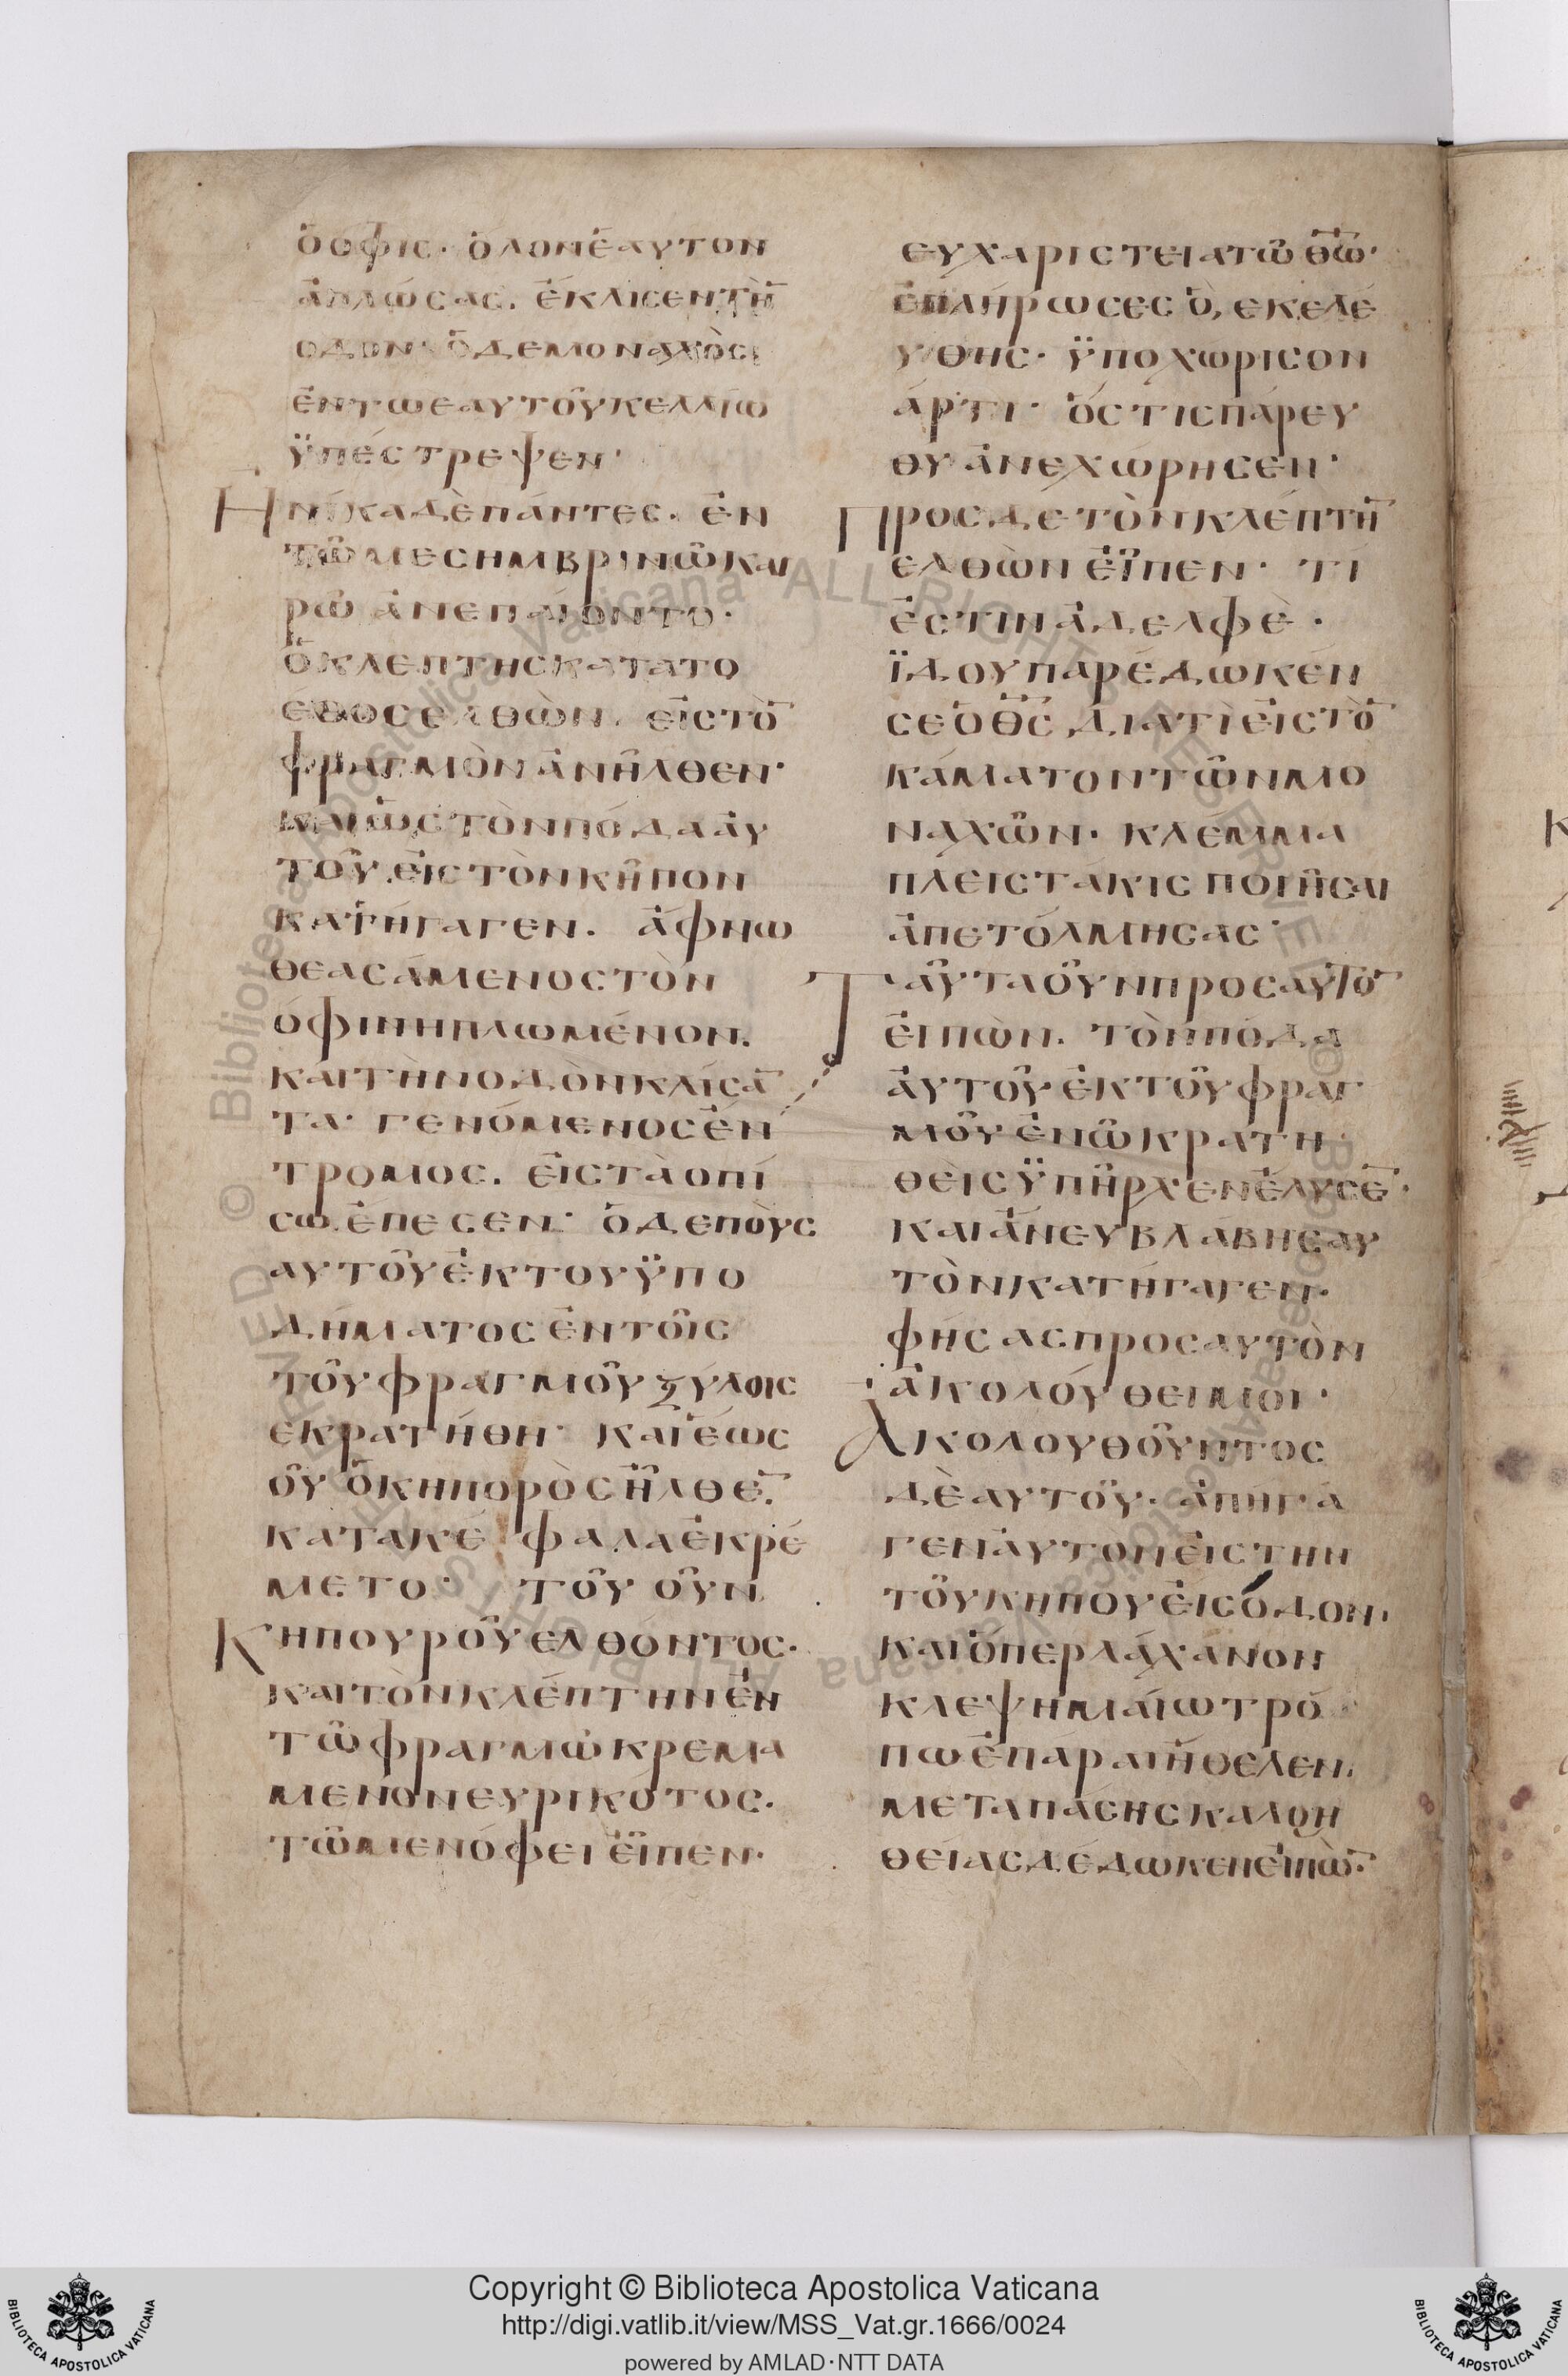 ὁ ὄφις· ὅλον ἑαυτον
ἁπλώσας. ἔκλισεν τὴ̅
οδον· ὁ δε μοναχὸς
ἐν τω εαυτοῦ κελλίω
ϋπέστρεψεν·
Ηνίκα δὲ πάντες. ἐν
τῶ μεσημβρινῶ και
ρῶ ἀνεπαύοντο·
ὁ κλεπτης κατα το
έθος ελθὼν. εἰς τὸ̅
φραγμὸν ἀνῆλθεν·
και ὡς τὸν πόδα αὐ
τοῦ εἰς τὸν κῆπον
κατήγαγεν. ἄφνω
θεασάμενος τὸν
όφιν ηπλωμένον.
και τὴν οδὸν κλίσα̅
τα· γενόμενος ἐν
τρομος. εἰς τὰ οπί
σω ἔπεσεν· ὁ δε ποὺς
αυτοῦ ἐκ του ϋπο
δήματος ἐν τοῖς
τοῦ φραγμοῦ ξύλοις
εκρατήθη· και ἕως
οῦ ὁ κηπορὸς ἦλθε̅.
κατακέφαλα ἐκρέ
μετο· τοῦ οῦν
Κηπουροῦ ελθόντος·
και τὸν κλέπτην ἐν
τῶ φραγμῶ κρεμα
μενον ευρικότος.
τῶ μεν όφει εἶπεν·
ευχαριστει ατῶ θ̅ω̅·
ἐπλήρωσες ὃ, εκελέ
υθης· ϋποχωρισον
άρτι· όστις πάρευ
θυ ἀνεχώρησεν·
Προς δε τὸν κλέπτη̅
ελθὼν εἶπεν· τί
ἐστιν ἀδελφὲ·
ϊδου παρέδωκέν
σε ὁ θ̅ς̅ διατὶ εἰς τὸ̅
κάματον τῶν μο
ναχῶν· κλέμμα
πλειστάκις ποιῆσαι
ἀπετόλμησας·
Ταῦτα οῦν προς αυτὸ̅
εἰπὼν. τὸν πόδα
ἀυτοῦ ἐκ τοῦ φραγ
μοῦ ἐν ῶ κρατη
θεὶς ϋπῆρχεν ἔλυσε̅·
και ἄνευ βλάβης αυ
τὸν κατήγαγεν·
φήσας προς αυτὸν
ἀκολούθει μοι·
Ακολουθοῦντος
δὲ αυτοῦ· ἀπήγα
γεν ἀυτον εἰς την
τοῦ κηπου εἰσόδον·
και ὅπερ λάχανον
κλεψημαίω τρό
πω ἐπάραι ήθελεν.
μετα πάσης καλοη
θείας δέδωκεν εἰπὼ̅·
Copyright © Biblioteca Apostolica Vaticana
http://digi.vatlib.it/view/MSS_Vat.gr.1666/0024
powered by AMLAD · NTT DATA